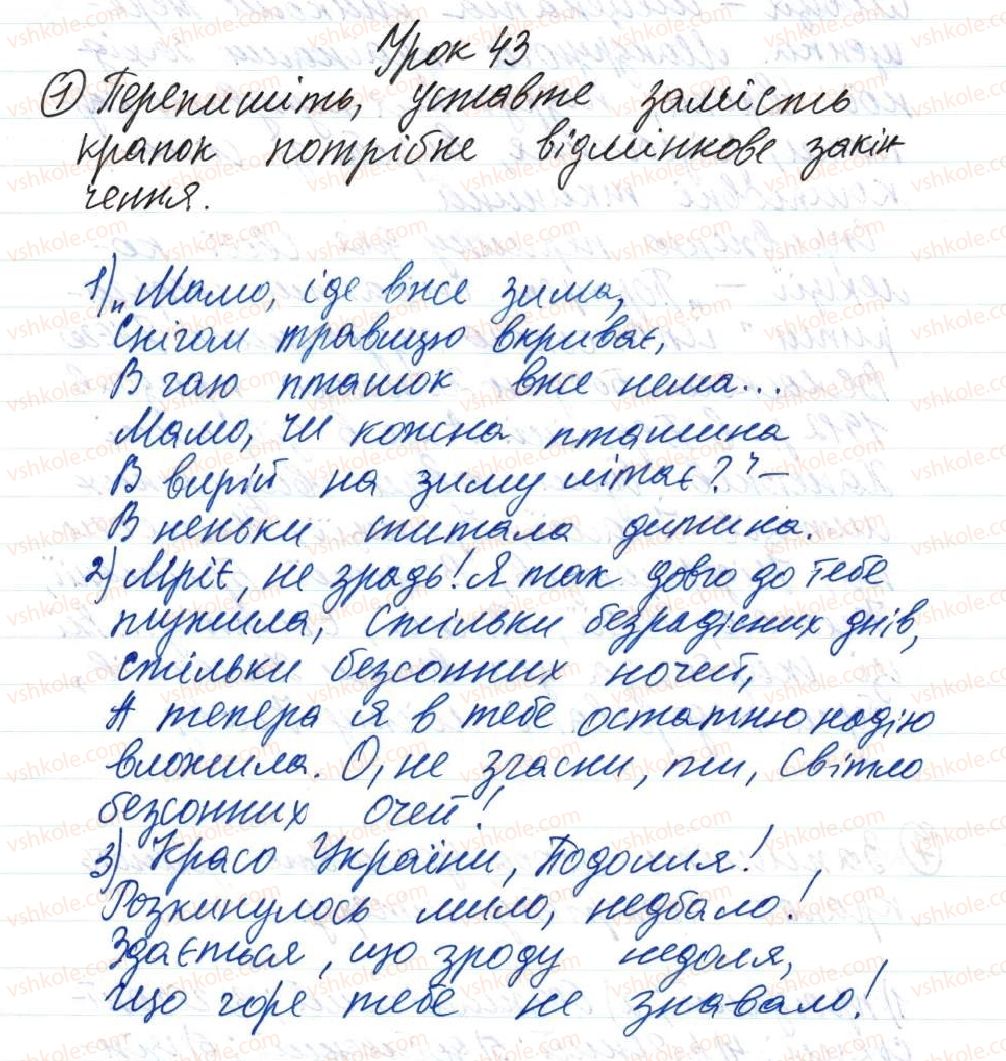 Урок 43
① Перепишіть, уставте замість
крапок потрібне відмінкове закін
чення.
1) „Мамо, іде вже зима,
Снігом травицю вкриває,
В гаю пташок вже нема...
Мамо, чи кожна пташина
В вирій на зиму літає?" –
В неньки спитала дитина.
2) Мріє, не зрадь! Я так довго до тебе
тужила, Стільки безрадісних днів,
стільки безсонних ночей,
А тепера я в тебе остатню надію
вложила. О, не згасни, ти, Світло
безсонних очей!
3) Красо України, Подолля!
Розкинулось мило, недбало!
Здається, що зроду недоля,
Що горе тебе не знавало!